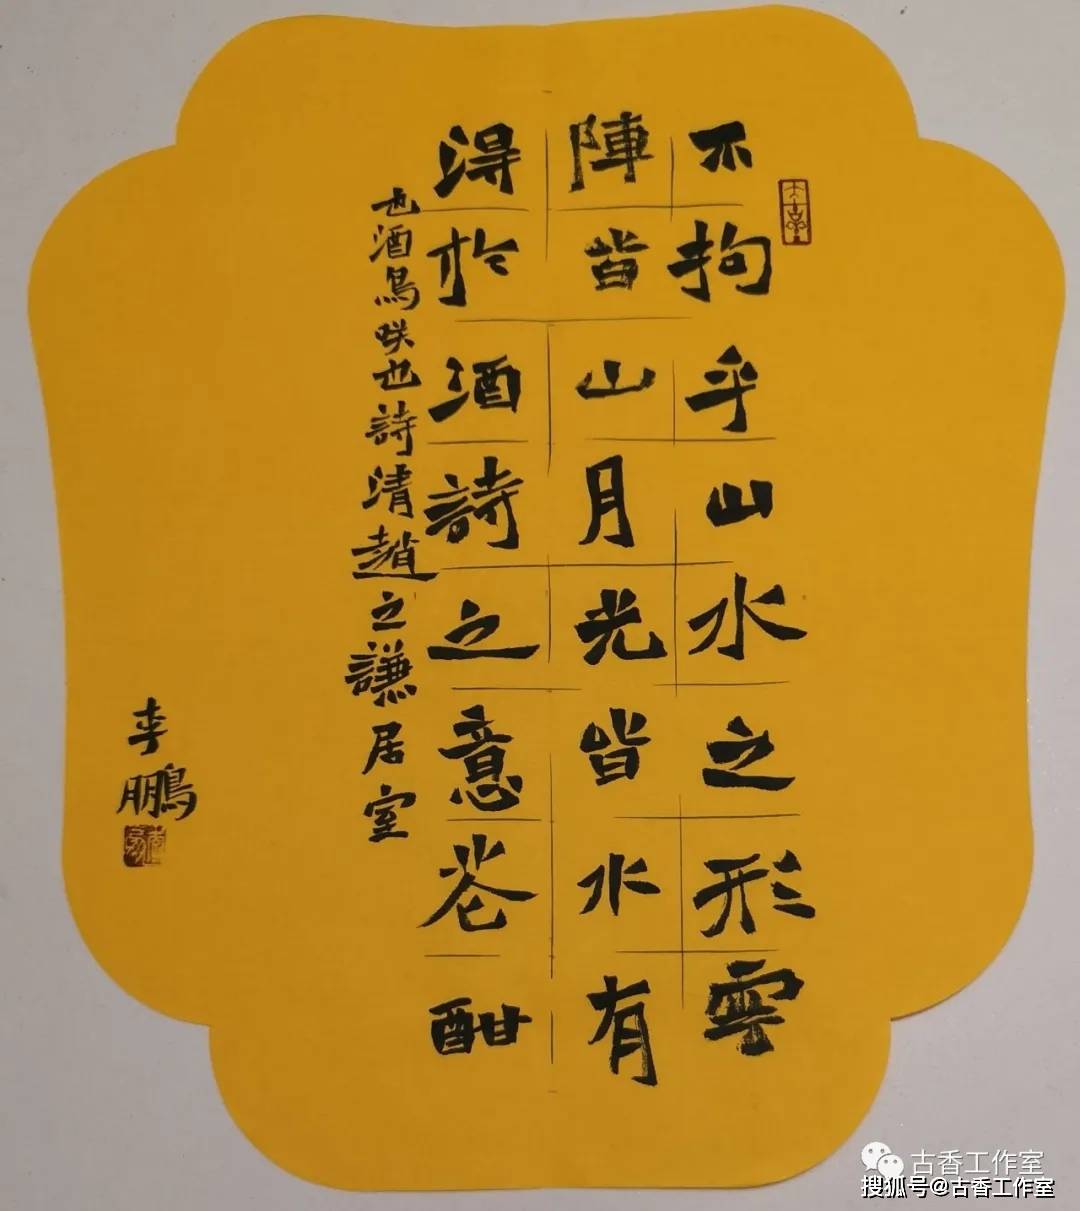 不拘乎山水之形雲
陣皆山月光皆水有
得於酒詩之意花酣
也酒鳥咲也詩清趙之謙居室
李鵬
古香工作室
搜狐号@古香工作室